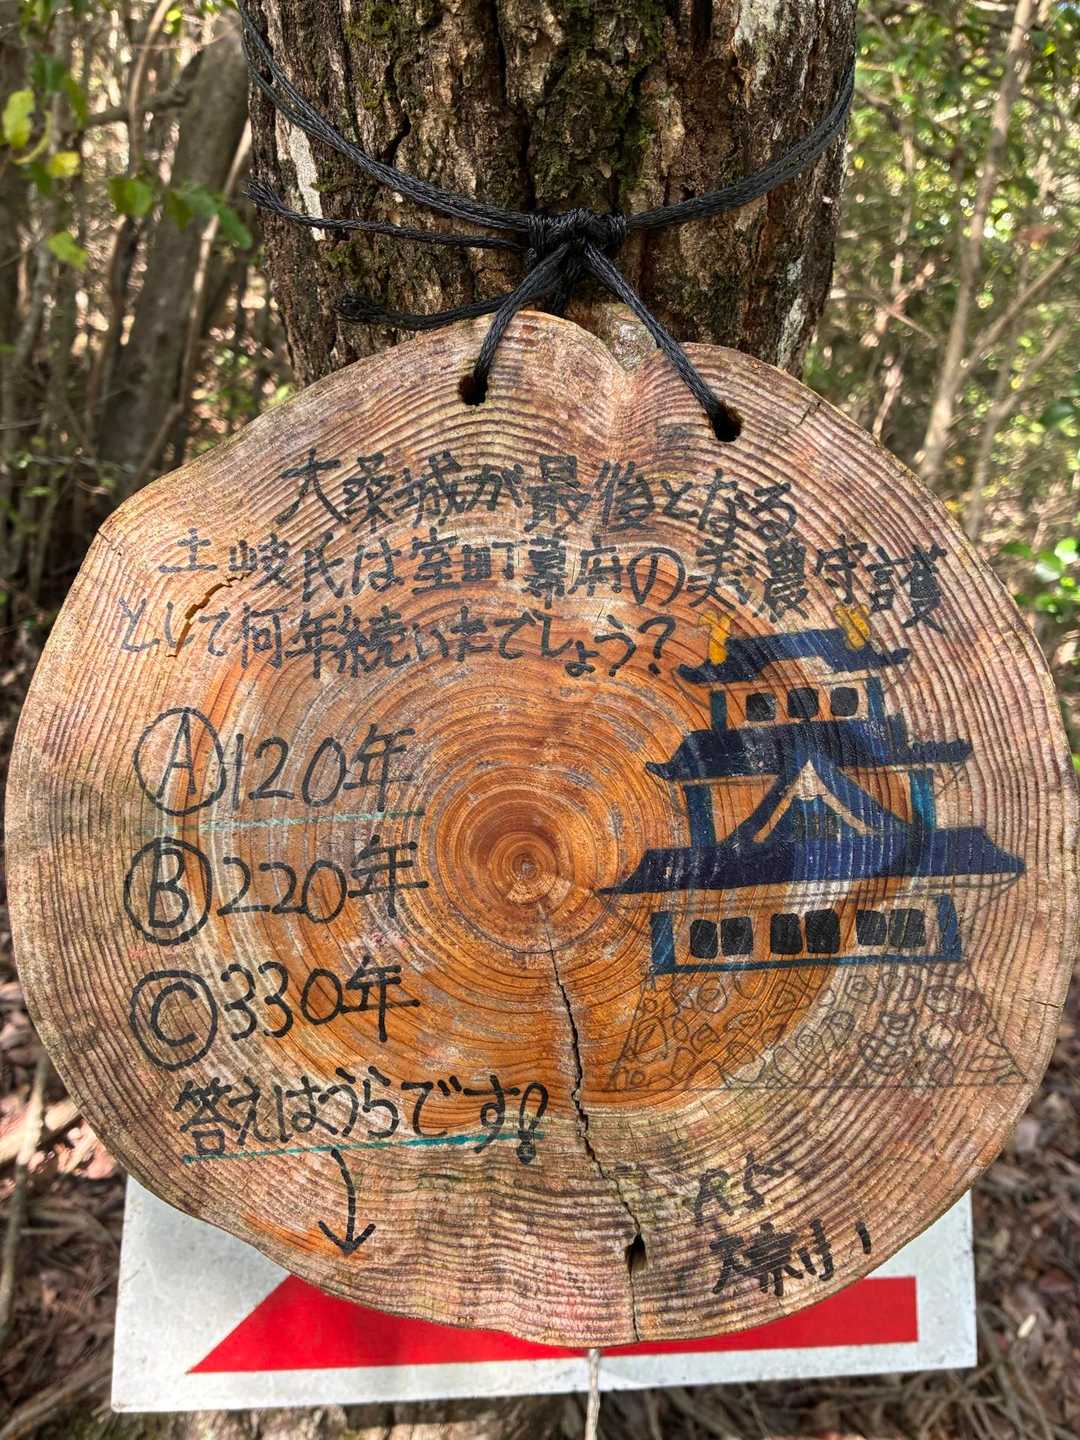 大桑城が最後となる
土岐氏は室町幕府の美濃守護
として何年続いたでしょう？
Ⓐ120年
Ⓑ220年
Ⓒ330年
答えはうらです!
R5